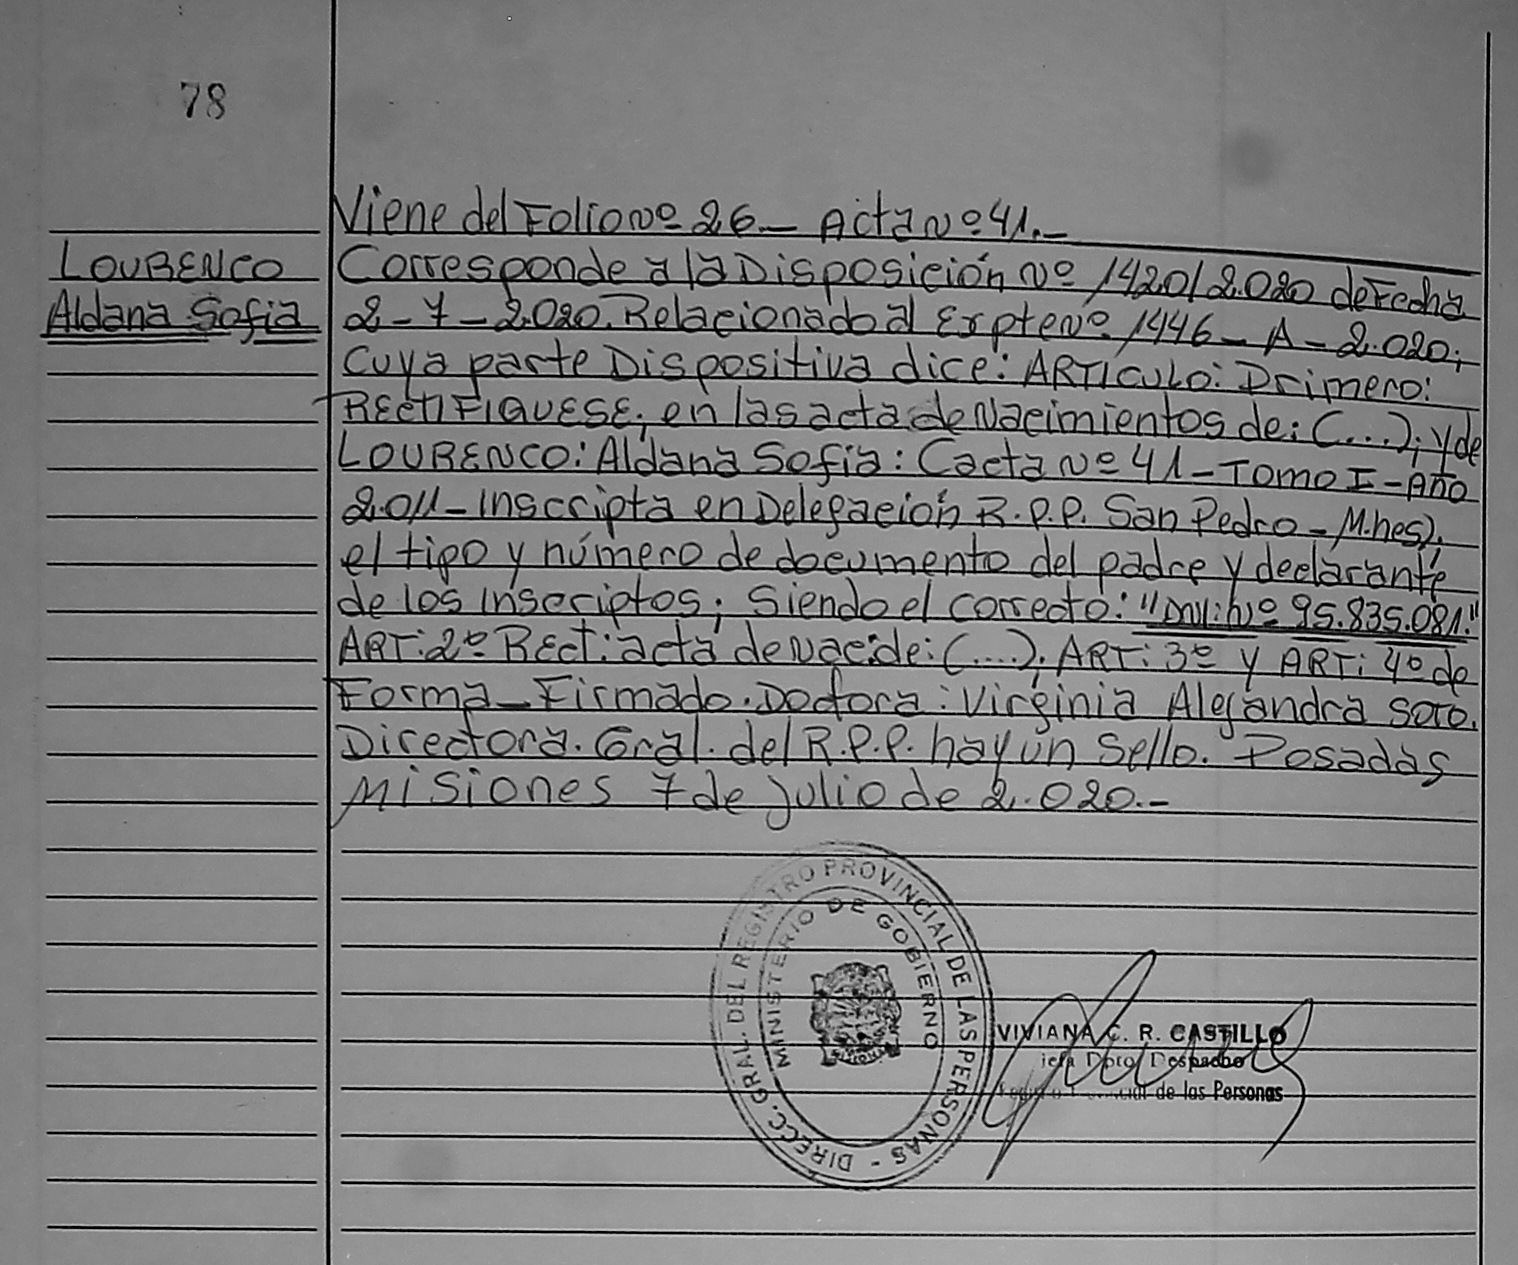 78
Viene del Folio Nº 26_ Acta Nº 41._
LOURENCO
Aldana Sofia
Corresponde a la Disposición Nº 1420/2.020 de Fecha
2_7_2.020. Relacionado al Expte Nº 1446_A_2.020;
Cuya parte Dispositiva dice: ARTICULO: Primero:
RECTIFIQUESE; en las acta de Nacimientos de: (...); y de
LOURENCO: Aldana Sofia: (acta Nº 41_TOMO I_Año
2.011_Inscripta en Delegación R.P.P. San Pedro_M.nes);
el tipo y número de documento del padre y declarante
de los Inscriptos; Siendo el Correcto: "DNI: Nº 95.835.081."
ART: 2º Rect: acta de Nac: de: (....); ART: 3º y ART: 4º de
Forma_Firmado. Doctora: Virginia Alejandra Soto.
Directora. Gral. del R.P.P. hay un Sello. Posadas
Misiones 7 de julio de 2.020.-
DIRECC. GRAL. DEL REGISTRO PROVINCIAL DE LAS PERSONAS -
MINISTERIO DE GOBIERNO
VIVIANA C. R. CASTILLO
Jefa Dpto. Despacho
de las Personas